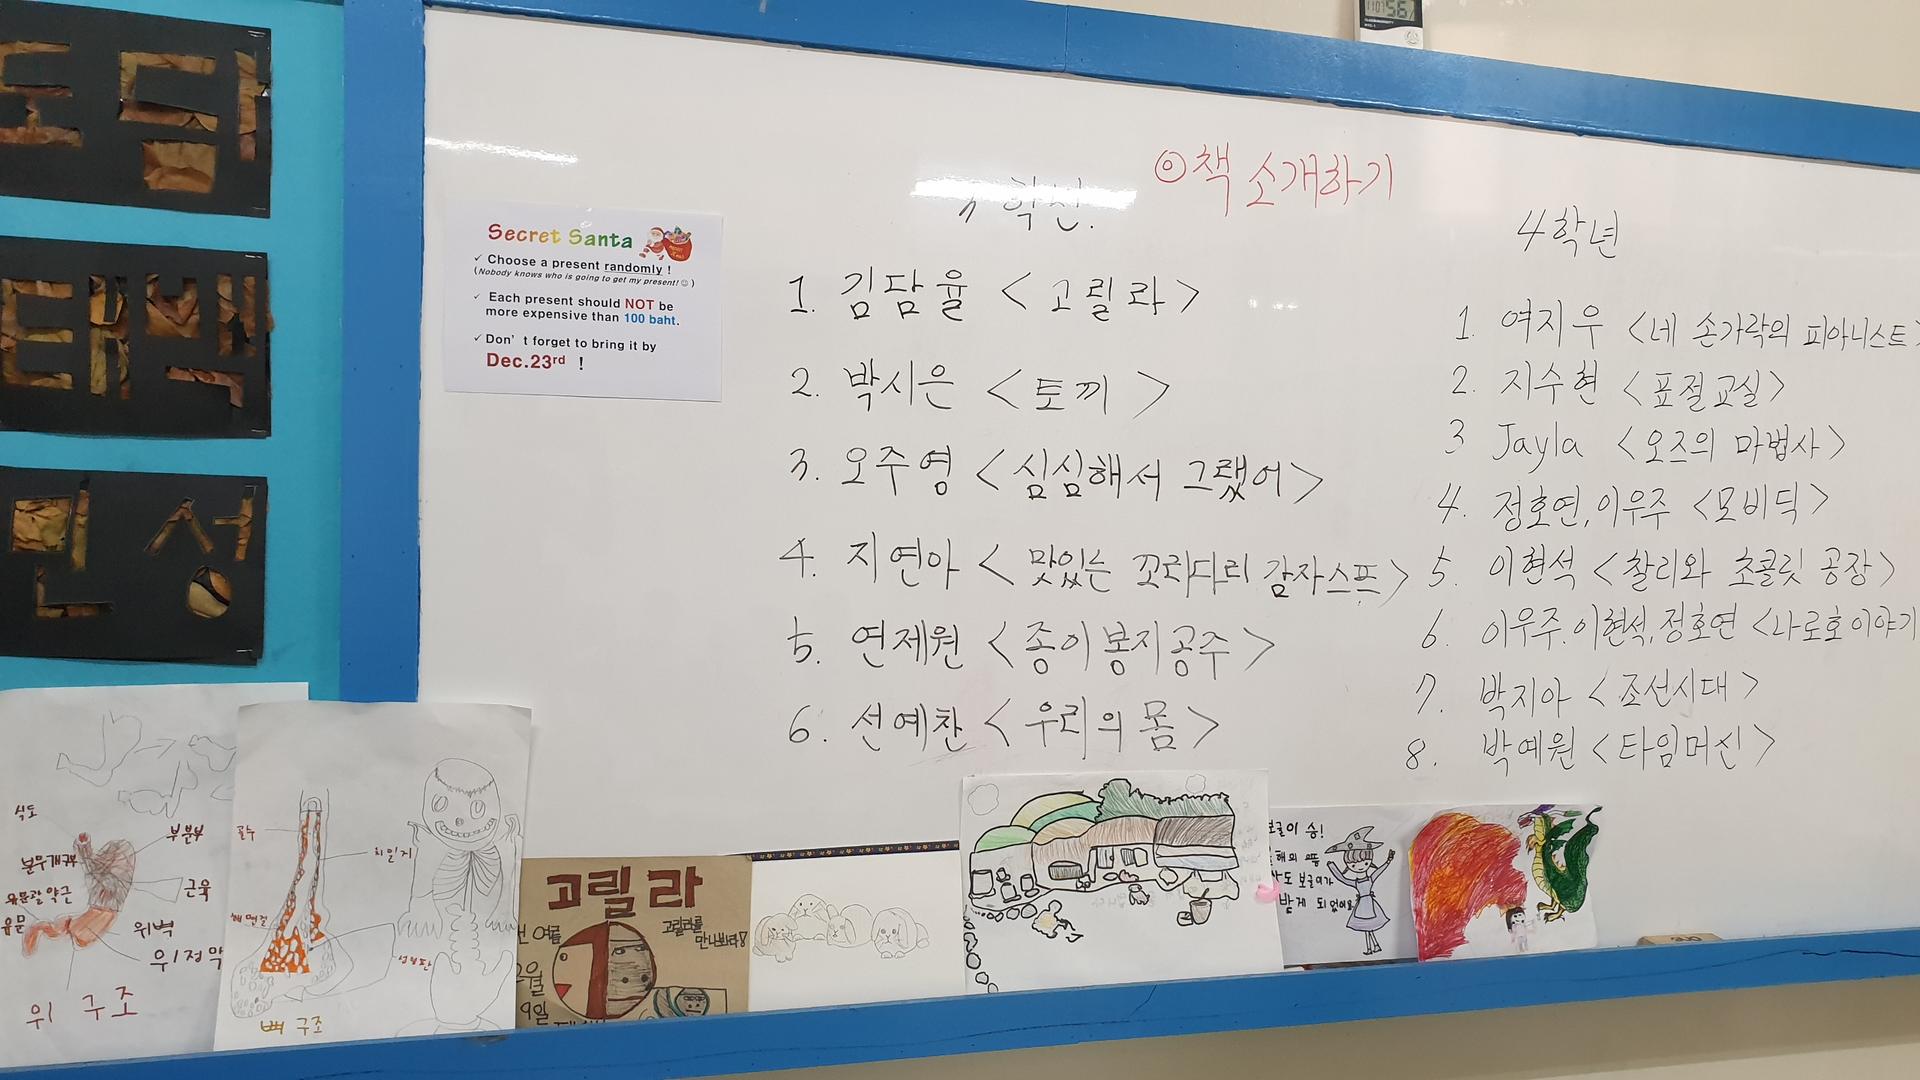 도담
태백
민성
1107567
Secret Santa
✓ Choose a present randomly !
(Nobody knows who is going to get my present! ☺ )
✓ Each present should NOT be
more expensive than 100 baht.
✓ Don't forget to bring it by
Dec.23rd !
◎책 소개하기
학년.
1. 김담율 <고릴라>
2. 박시은 <토끼>
3. 오주영 <심심해서 그랬어>
4. 지연아 < 맛있는 꼬리다리 감자스프>
5. 연제원 <종이봉지공주>
6. 선예찬 <우리의 몸>
4학년
1. 여지우 <네 손가락의 피아니스트>
2. 지수현 <표절교실>
3 Jayla <오즈의 마법사>
4. 정호연, 이우주 <모비딕>
5. 이현석 <찰리와 초콜릿 공장>
6. 이우주. 이현석, 정호연 <나로호이야기
7. 박지아 <조선시대>
8. 박예원 <타임머신>
식도
부분부
근육
유문
위벽
위점막
위 구조
골수
치밀지
뼈 구조
고릴라
고릴라를
만나봐라!
여름
2월
9일
보글이 슝!
보글이가
받게 되었어요